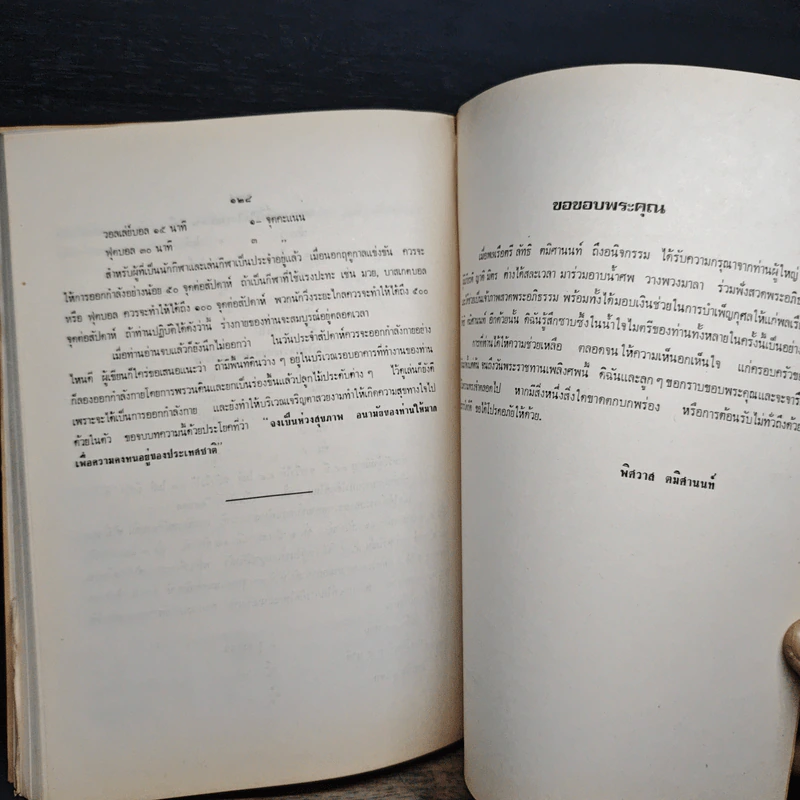 ๑๒๔
วอลเล่ย์บอล ๑๕ นาที ๑- จุดคะแนน
ฟุตบอล ๓๐ นาที ๓ "
สำหรับผู้ที่เป็นนักกีฬาและเล่นกีฬาเป็นประจำอยู่แล้ว เมื่อนอกฤดูกาลแข่งขัน ควรจะ
ให้การออกกำลังอย่างน้อย ๕๐ จุดต่อสัปดาห์ ถ้าเป็นกีฬาที่ใช้แรงปะทะ เช่น มวย, บาสเกตบอล
หรือ ฟุตบอล ควรจะทำให้ได้ถึง ๑๐๐ จุดต่อสัปดาห์ พวกนักวิ่งระยะไกลควรจะทำให้ได้ถึง ๕๐๐
จุดต่อสัปดาห์ ถ้าท่านปฏิบัติได้ดังว่านี้ ร่างกายของท่านจะสมบูรณ์อยู่ตลอดเวลา
เมื่อท่านอ่านจบแล้วก็ยังนึกไม่ออกว่า ในวันประจำสัปดาห์ควรจะออกกำลังกายอย่าง
ไหนดี ผู้เขียนก็ใคร่ขอเสนอแนะว่า ถ้ามีพื้นที่ดินว่าง ๆ อยู่ในบริเวณรอบอาคารที่ทำงานของท่าน
ก็ลองออกกำลังกายโดยการพรวนดินและยกเป็นร่องขึ้นแล้วปลูกไม้ประดับต่าง ๆ ไว้ดูเล่นก็ยังดี
เพราะจะได้เป็นการออกกำลังกาย และยังทำให้บริเวณเจริญตาสวยงามทำให้เกิดความสุขทางใจไป
ด้วยในตัว ขอจบบทความนี้ด้วยประโยคที่ว่า "จงเป็นห่วงสุขภาพ อนามัยของท่านให้มาก
เพื่อความคงทนอยู่ของประเทศชาติ"
ขอขอบพระคุณ
เมื่อพลเรือตรี ลัทธิ ตมิศานนท์ ถึงอนิจกรรม ได้รับความกรุณาจากท่านผู้ใหญ่
ญาติ มิตร ต่างได้สละเวลา มาร่วมอาบน้ำศพ วางพวงมาลา ร่วมฟังสวดพระอภิธ
เป็นเจ้าภาพสวดพระอภิธรรม พร้อมทั้งได้มอบเงินช่วยในการบำเพ็ญกุศลให้แก่พลเรือ
ตมิศานนท์ อีกด้วยนั้น ดิฉันรู้สึกซาบซึ้งในน้ำใจไมตรีของท่านทั้งหลายในครั้งนี้เป็นอย่าง
การที่ท่านได้ให้ความช่วยเหลือ ตลอดจนให้ความเห็นอกเห็นใจ แก่ครอบครัวของ
จนถึงวันพระราชทานเพลิงศพนี้ ดิฉันและลูก ๆ ขอกราบขอบพระคุณและจะจารึ
ตลอดไป หากมีสิ่งหนึ่งสิ่งใดขาดตกบกพร่อง หรือการต้อนรับไม่ทั่วถึงด้วย
ขอได้โปรดอภัยให้ด้วย.
พิศวาส ตมิศานนท์